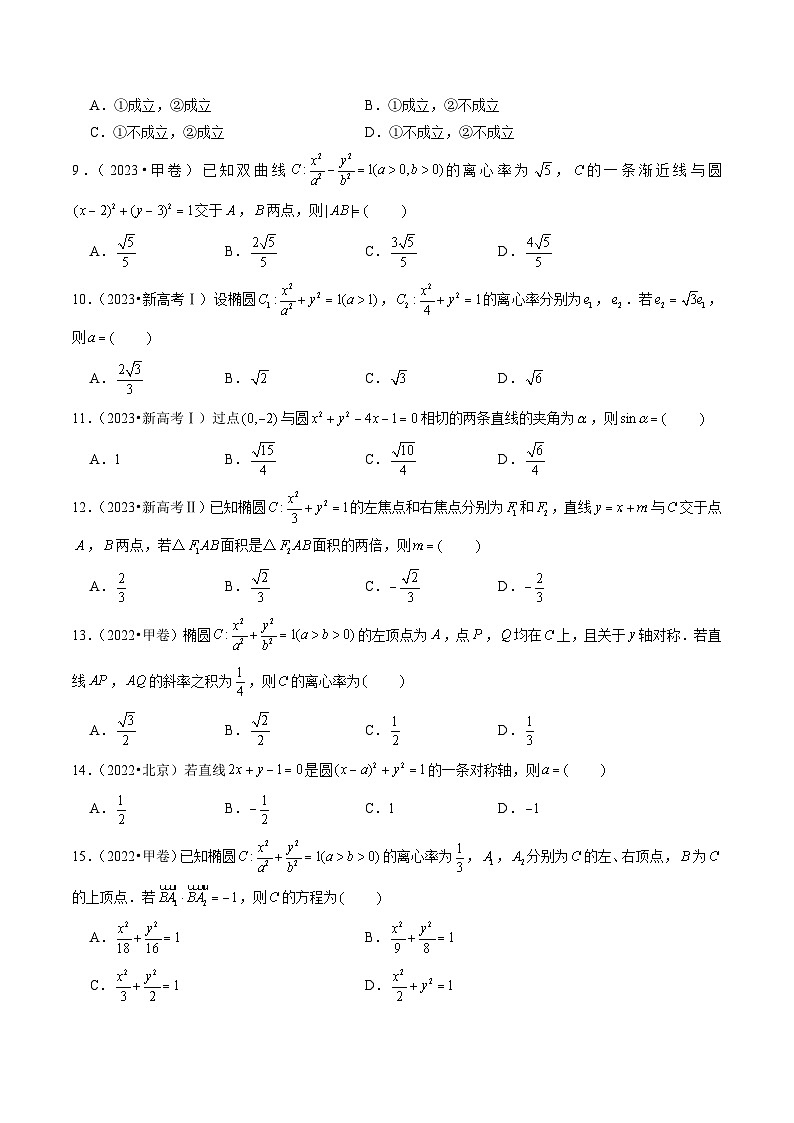 A.①成立,②成立 B.①成立,②不成立
C.①不成立,②成立 D.①不成立,②不成立
9.(2023•甲卷)已知双曲线 $C:\frac{x^2}{a^2}-\frac{y^2}{b^2}=1(a>0,b>0)$ 的离心率为 $\sqrt{5}$,$C$ 的一条渐近线与圆
$(x-2)^2+(y-3)^2=1$ 交于 $A$,$B$ 两点,则 $|AB|=$( )
A.$\frac{\sqrt{5}}{5}$ B.$\frac{2\sqrt{5}}{5}$ C.$\frac{3\sqrt{5}}{5}$ D.$\frac{4\sqrt{5}}{5}$
10.(2023•新高考Ⅰ)设椭圆 $C_1:\frac{x^2}{a^2}+y^2=1(a>1)$,$C_2:\frac{x^2}{4}+y^2=1$ 的离心率分别为 $e_1$,$e_2$.若 $e_2=\sqrt{3}e_1$,
则 $a=$( )
A.$\frac{2\sqrt{3}}{3}$ B.$\sqrt{2}$ C.$\sqrt{3}$ D.$\sqrt{6}$
11.(2023•新高考Ⅰ)过点 $(0,-2)$ 与圆 $x^2+y^2-4x-1=0$ 相切的两条直线的夹角为 $\alpha$,则 $\sin\alpha=$( )
A.1 B.$\frac{\sqrt{15}}{4}$ C.$\frac{\sqrt{10}}{4}$ D.$\frac{\sqrt{6}}{4}$
12.(2023•新高考Ⅱ)已知椭圆 $C:\frac{x^2}{3}+y^2=1$ 的左焦点和右焦点分别为 $F_1$ 和 $F_2$,直线 $y=x+m$ 与 $C$ 交于点
$A$,$B$ 两点,若△$F_1AB$ 面积是△$F_2AB$ 面积的两倍,则 $m=$( )
A.$\frac{2}{3}$ B.$\frac{\sqrt{2}}{3}$ C.$-\frac{\sqrt{2}}{3}$ D.$-\frac{2}{3}$
13.(2022•甲卷)椭圆 $C:\frac{x^2}{a^2}+\frac{y^2}{b^2}=1(a>b>0)$ 的左顶点为 $A$,点 $P$,$Q$ 均在 $C$ 上,且关于 $y$ 轴对称.若直
线 $AP$,$AQ$ 的斜率之积为 $\frac{1}{4}$,则 $C$ 的离心率为( )
A.$\frac{\sqrt{3}}{2}$ B.$\frac{\sqrt{2}}{2}$ C.$\frac{1}{2}$ D.$\frac{1}{3}$
14.(2022•北京)若直线 $2x+y-1=0$ 是圆 $(x-a)^2+y^2=1$ 的一条对称轴,则 $a=$( )
A.$\frac{1}{2}$ B.$-\frac{1}{2}$ C.1 D.$-1$
15.(2022•甲卷)已知椭圆 $C:\frac{x^2}{a^2}+\frac{y^2}{b^2}=1(a>b>0)$ 的离心率为 $\frac{1}{3}$,$A_1$,$A_2$ 分别为 $C$ 的左、右顶点,$B$ 为 $C$
的上顶点.若 $\overrightarrow{BA_1}\cdot\overrightarrow{BA_2}=-1$,则 $C$ 的方程为( )
A.$\frac{x^2}{18}+\frac{y^2}{16}=1$ B.$\frac{x^2}{9}+\frac{y^2}{8}=1$
C.$\frac{x^2}{3}+\frac{y^2}{2}=1$ D.$\frac{x^2}{2}+y^2=1$